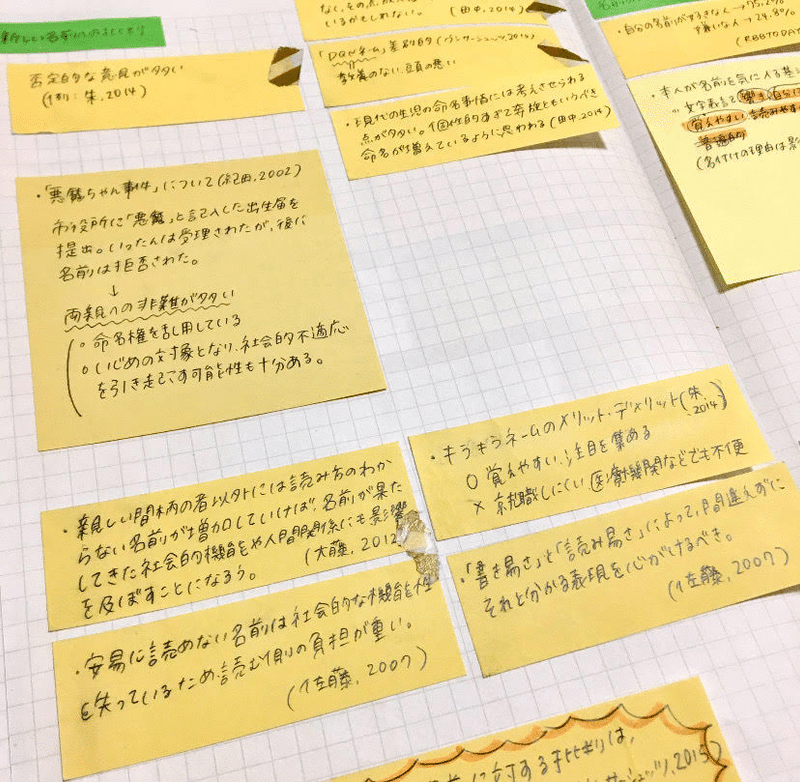 新しい名前
否定的な意見が多い
(例: 朱, 2014)
なし、その点
いるかもしれない。
(田中, 2014)
「DQNネーム」差別的
教養のない、頭の悪い
・現代の生児の命名事情には考えさせられる
点が多い。個性的すぎて奔放ともいうべき
命名が増えているように思われる(田中, 2014)
・自分の名前が好きな人→75.2%
嫌いな人→24.8%
(RBBTODAY
・本人が名前を気に入る基
覚えやすい 読みやす
普遍的
(名付けの理由は影
・「悪魔ちゃん事件」について(紀田, 2002)
市役所に「悪魔」と記入した出生届を
提出。いったんは受理されたが、後に
名前は拒否された。
↓
両親への非難が多い
○ 命名権を乱用している
○ いじめの対象となり、社会的不適応
を引き起こす可能性も十分ある。
・キラキラネームのメリット・デメリット(朱, 2014)
○ 覚えやすい、注目を集める
× 就職しにくい 医療機関などでも不便
・親しい間柄の者以外には読み方のわか
らない名前が増加していけば、名前が果た
してきた社会的機能や人間関係にも影響
を及ぼすことになろう。
(大藤, 2012
・「書き易さ」と「読み易さ」によって、間違えずに
それと分かる表現を心がけるべき。
(佐藤, 2007)
・安易に読めない名前は社会的な機能性
を失っているため読む側の負担が重い。
(佐藤, 2007)
前に対する批判は、
サーシュッツ, 2015